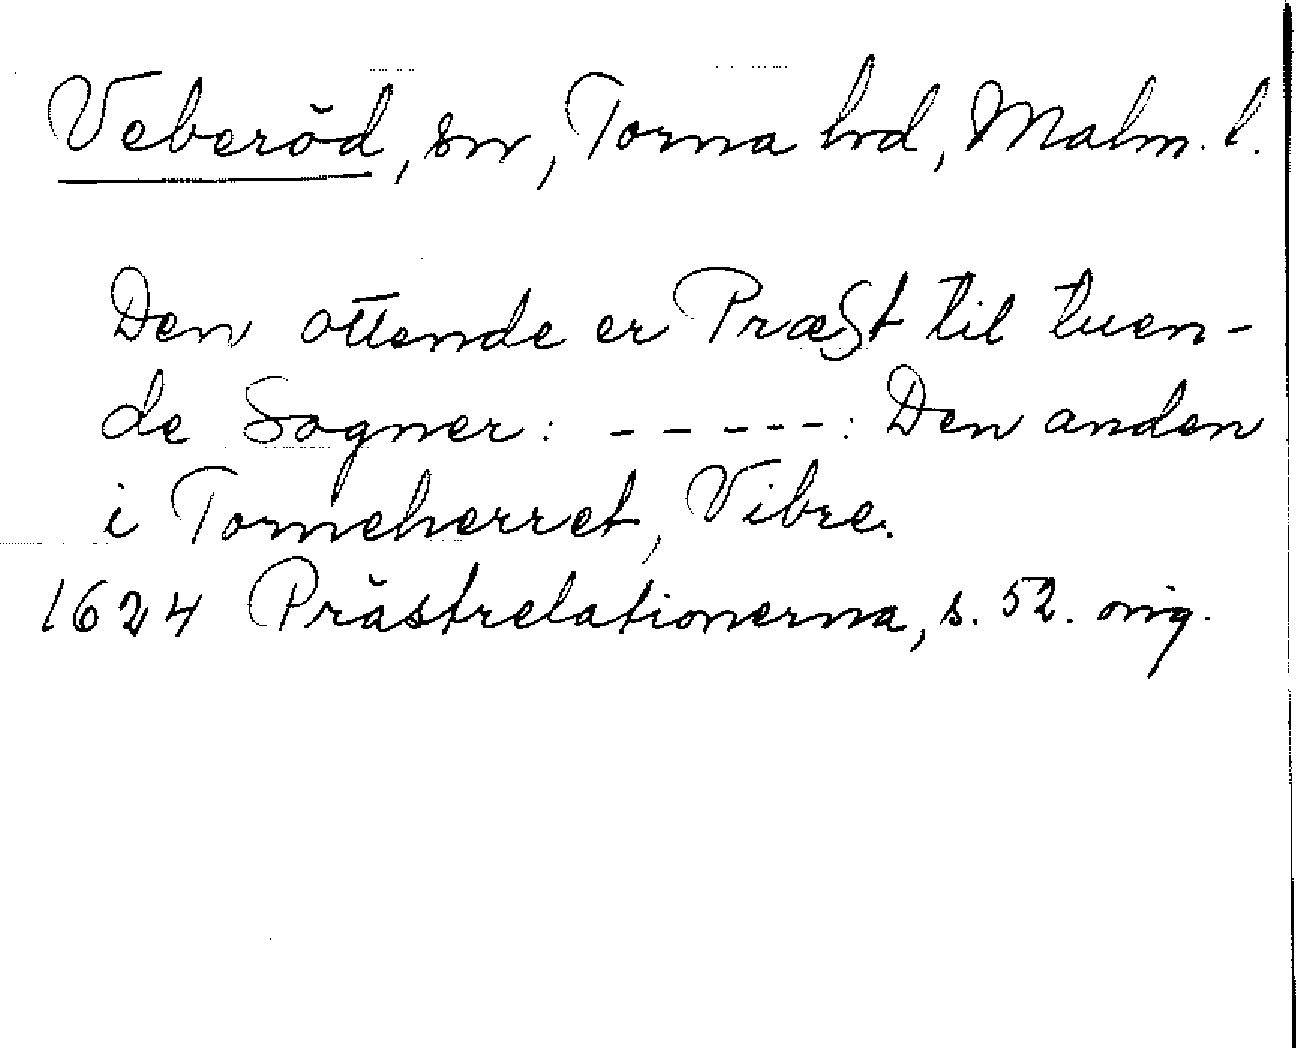 Veberöd, sn, Torna hd, Malm. l.
Den ottende er Præst til tuen-
de Sogner: - - - - -: Den anden
i Torneherret, Vibre.
1624 Prästrelationerna, s. 52. orig.